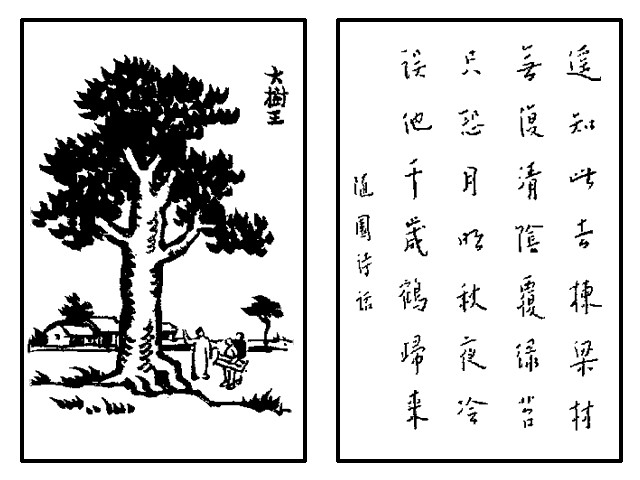 大樹王
遥知此去棟梁材
無復清陰覆緑苔
只恐月明秋夜冷
誤他千歲鶴歸来
隨園詩話